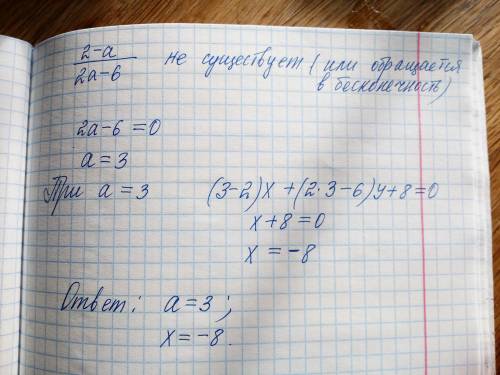 2-a
2a-6 не существует (или обращается
в бесконечность)
2a-6=0
a=3
При a=3 (3-2)x+(2·3-6)y+8=0
x+8=0
x=-8
Ответ: a=3;
x=-8.